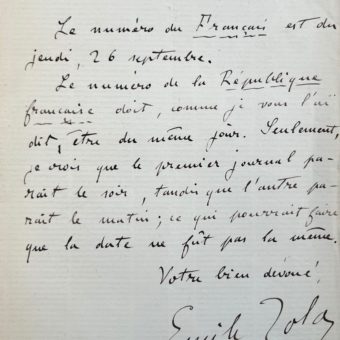 Le numéro du Français est du
jeudi, 26 septembre.
Le numéro de la République
française doit, comme je vous l'ai
dit, être du même jour. Seulement,
je crois que le premier journal pa-
raît le soir, tandis que l'autre pa-
raît le matin; ce qui pourrait faire
que la date ne fût pas la même.
Votre bien dévoué,
Emile Zola